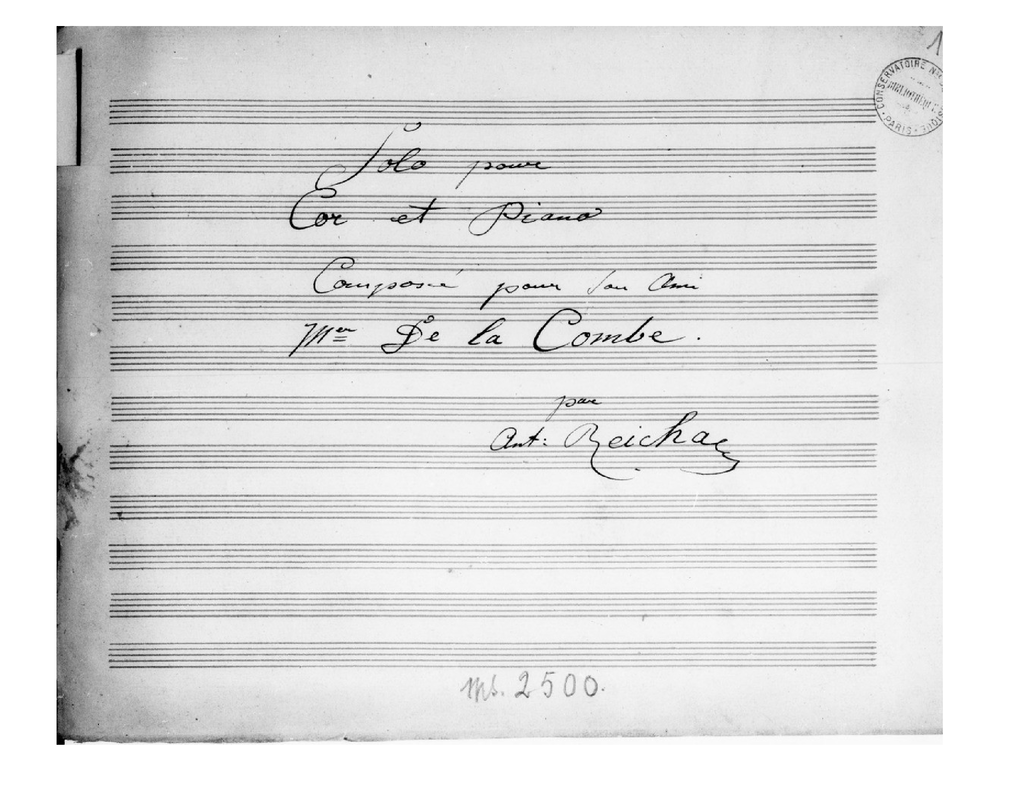 1
CONSERVATOIRE
BIBLIOTHEQUE
PARIS
Solo pour
Cor et Piano
Composé pour son Ami
Mer De la Combe.
par
Ant: Reicha
Ms. 2500.